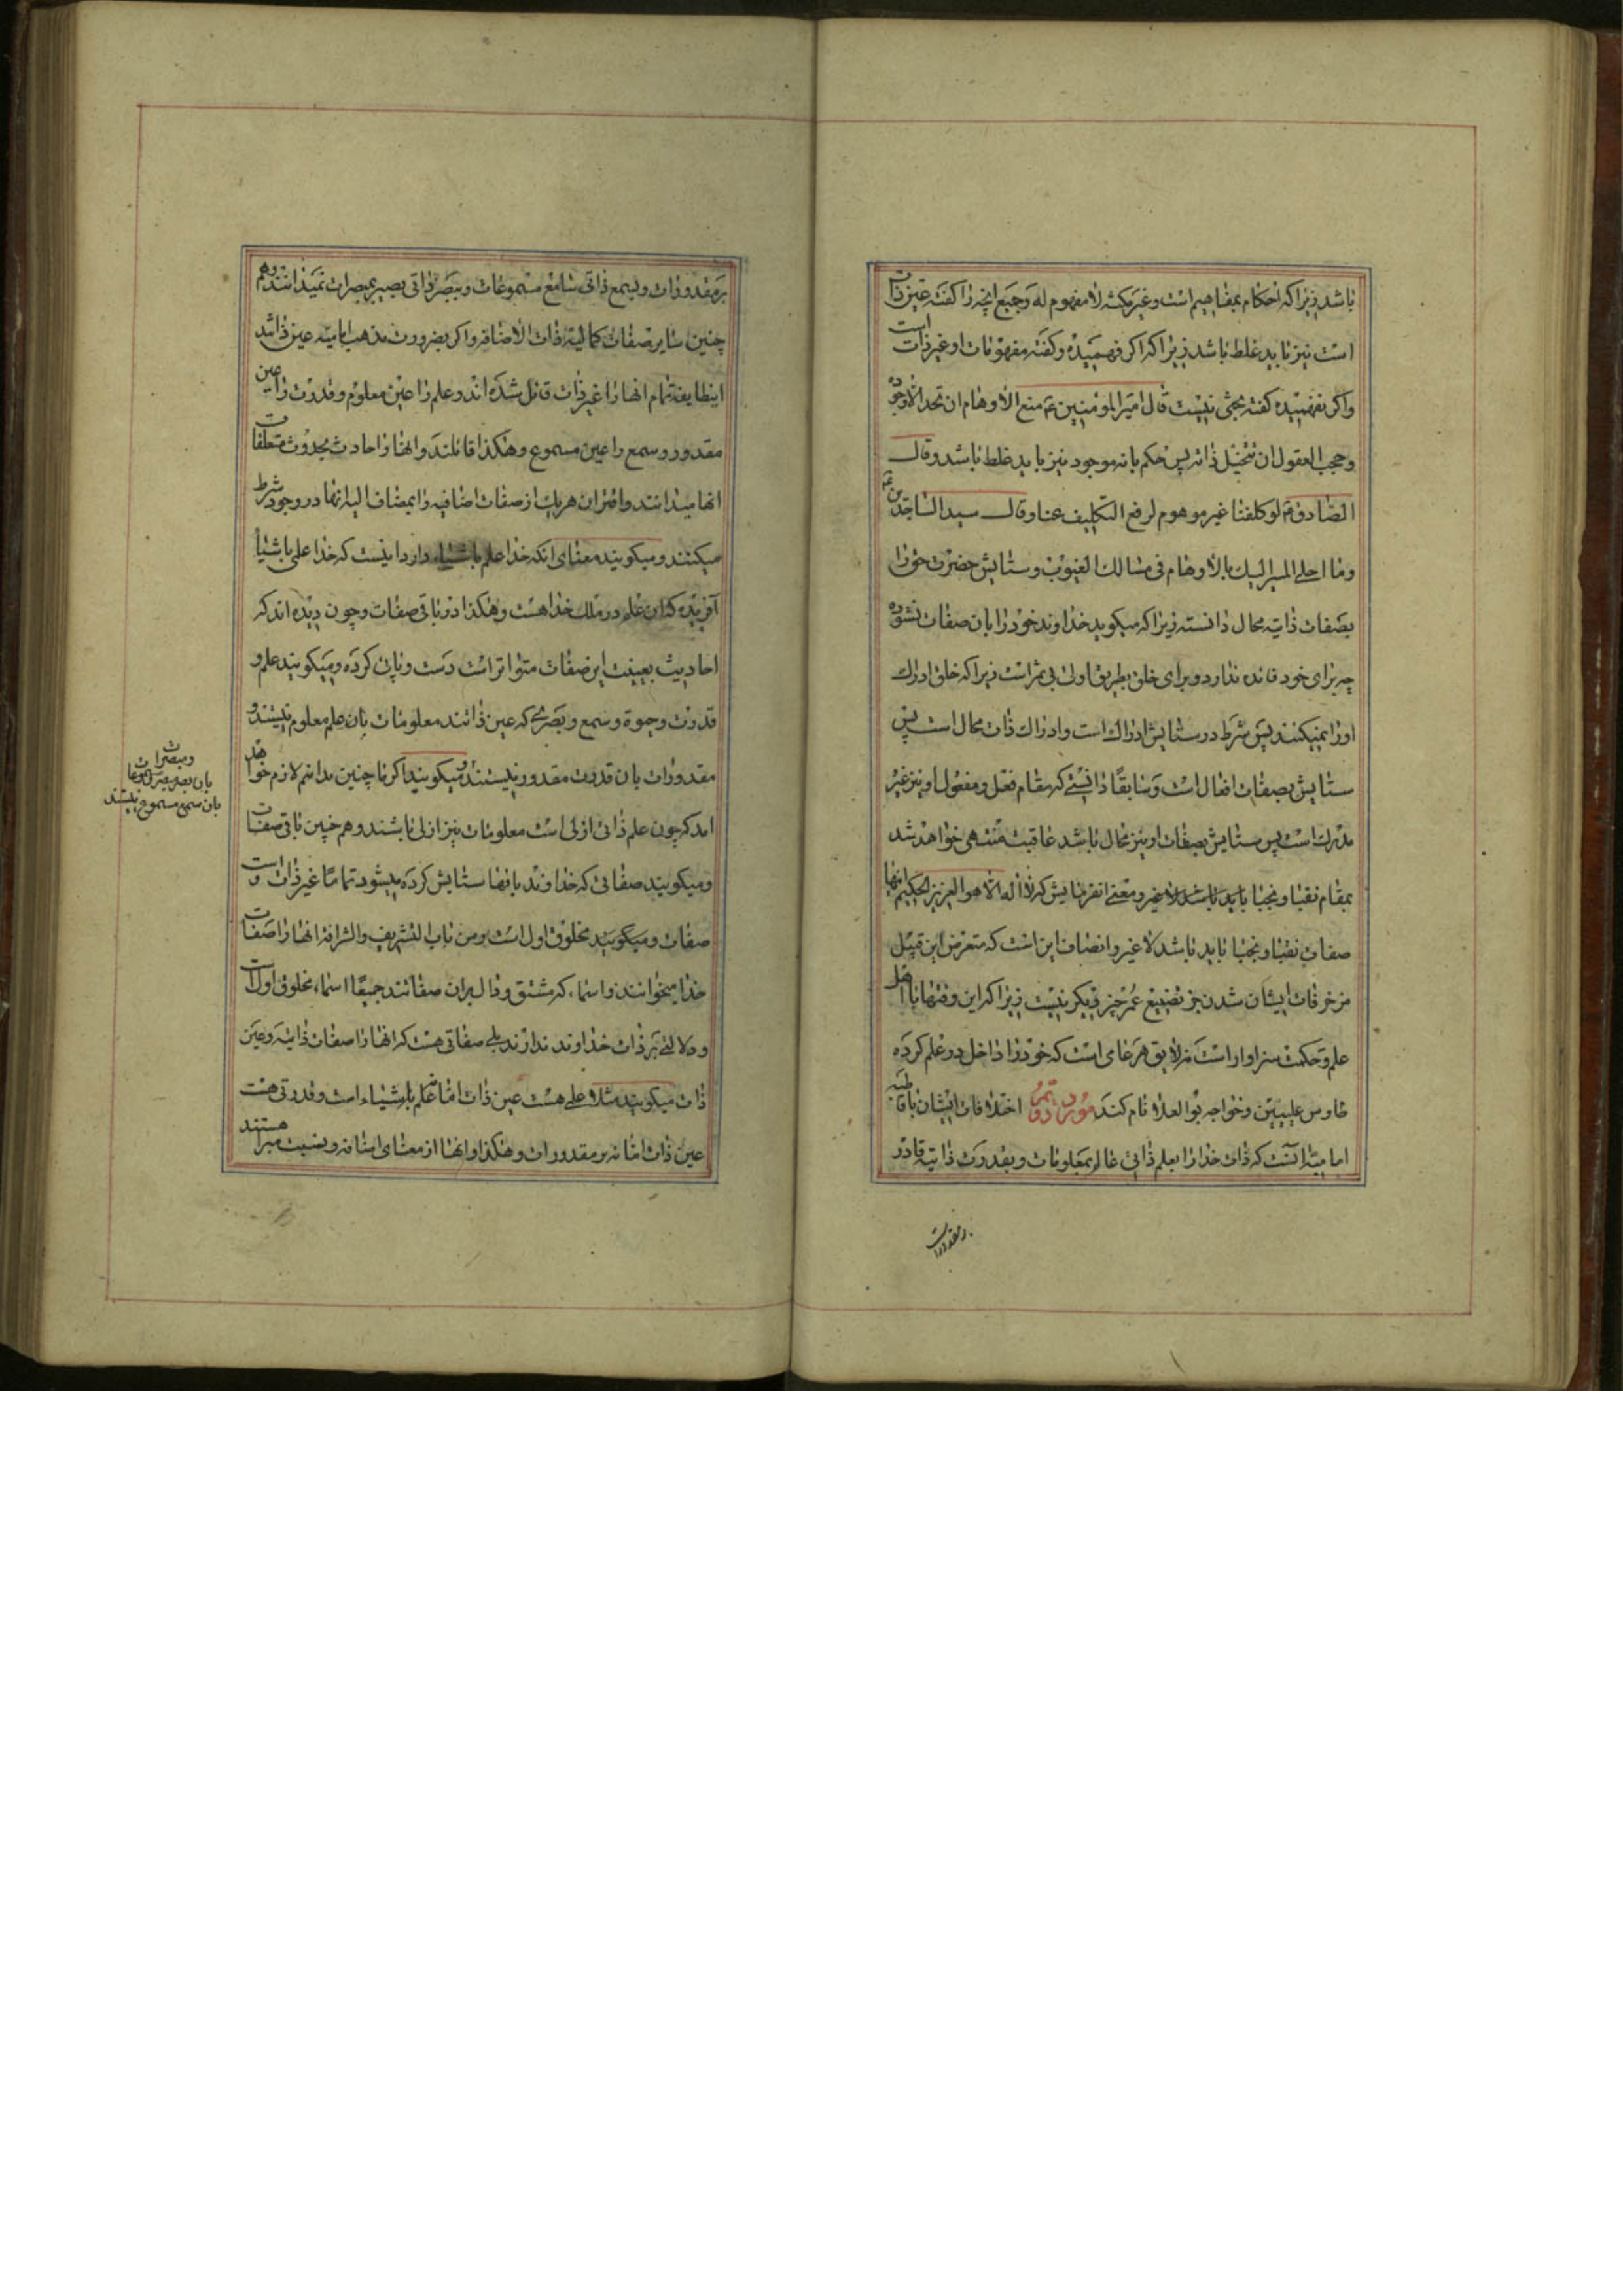 باشد زیرا که احکام بمفاهیم است و غیر مکتنه لا مفهوم له و جمیع انچه را کفته عین ذات
است نیز باید غلط باشد زیرا که اکر فهمیده و کفته مفهومات او غیر ذات است
واکر نفهمیده کفته بحثی نیست قال امیر المؤمنین ع منع الاوهام ان تحد الا وجوده
و حجب العقول ان تتخیل ذاته پس حکم بانه موجود نیز باید غلط باشد و قال
الصادق ع لو کلفنا غیر موهوم لرفع التکلیف عنا و قال سید الساجدین ع
وما احلی المسیر الیک بالاوهام فی مسالک الغیوب و ستایش حضرت حق را
بصفات ذاتیه محال دانسته زیرا که میکوید خداوند خود را بان صفات نستوده
چه برای خود فائده ندارد و برای خلق بطریق اولی بی ثمر است زیرا که خلق ادراک
او را نمیکنند پس شرط در ستایش ادراک است و ادراک ذات محال است پس
ستایش بصفات افعال است و سابقا دانستی که مقام فعل و مفعول او نیز غیر
مدرک است پس ستایش بصفات او نیز محال باشد عاقبت منتهی خواهد شد
بمقام نقبا و نجبا باید باشد لا غیر و معنی انفرمایش که لا اله الا هو العزیز الحکیم تنها
صفات نقبا و نجبا باید باشد لا غیر و انصاف این است که متعرض این قبیل
مزخرفات ایشان شدن جز تضییع عمر چیز دیکر نیست زیرا که این وقتها با اهل
علم و حکمت سزاوار است نه لایق هر عامی است که خود را داخل در علم کرده
طاوس علیین و خواجه بو العلا نام کند مورد دویم اختلافات ایشان با قاطبه
امامیه انست که ذات خدا را بعلم ذاتی عالم بمعلومات و بقدرت ذاتیه قادر
بر مقدورات
بر مقدورات و بسمع ذاتی سامع مسموعات و ببصر ذاتی بصیر بمبصرات نمیدانند و هم
چنین سایر صفات کمالیه ذات الاضافه را که بضرورت مذهب امامیه عین ذاتند
اینطایفه تمام انها را غیر ذات قائل شده اند و علم را عین معلوم و قدرت را عین
مقدور و سمع را عین مسموع و هکذا قائلند و انها را حادث بحدوث متعلقات
انها میدانند و اقتران هر یک از صفات اضافیه را بمضاف الیه انها در وجود شرط
میکنند و میکویند معنای انکه خدا علم باشیاء دارد اینست که خدا علمی باشیا
آفریده که ان علم در ملک خدا هست و هکذا در باقی صفات و چون دیده اند که
احادیث بعینیت این صفات متواتر است دست و پائی کرده و میکویند علم و
قدرت و حیوة و سمع و بصری که عین ذاتند معلومات بان علم معلوم نیستند و
مقدورات بان قدرت مقدور نیستند و میکویند اکر ما چنین بدانیم لازم خواهد
امد که چون علم ذاتی ازلی است معلومات نیز ازلی باشند و هم چنین باقی صفات
و میکویند صفاتی که خداوند بانها ستایش کرده میشود تماما غیر ذات است و
صفات و میکویند مخلوق اول است و من باب التشریف و الشرافة انها را صفات
خدا میخوانند و اسماء که مشتق و دال بران صفاتند جمیعا اسماء مخلوق اول است
و دلالتی بر ذات خداوند ندارند بلی صفاتی هست که انها را صفات ذاتیه و عین
ذات میکویند مثلا علمی هست عین ذات اما نه علم باشیاء است و قدرتی هست
عین ذات اما نه بر مقدورات و هکذا و انها از معنای اضافه و نسبت مبرا هستند
و مبصرات
بان بصر مبصر و مسموعات
بان سمع مسموع نیستند